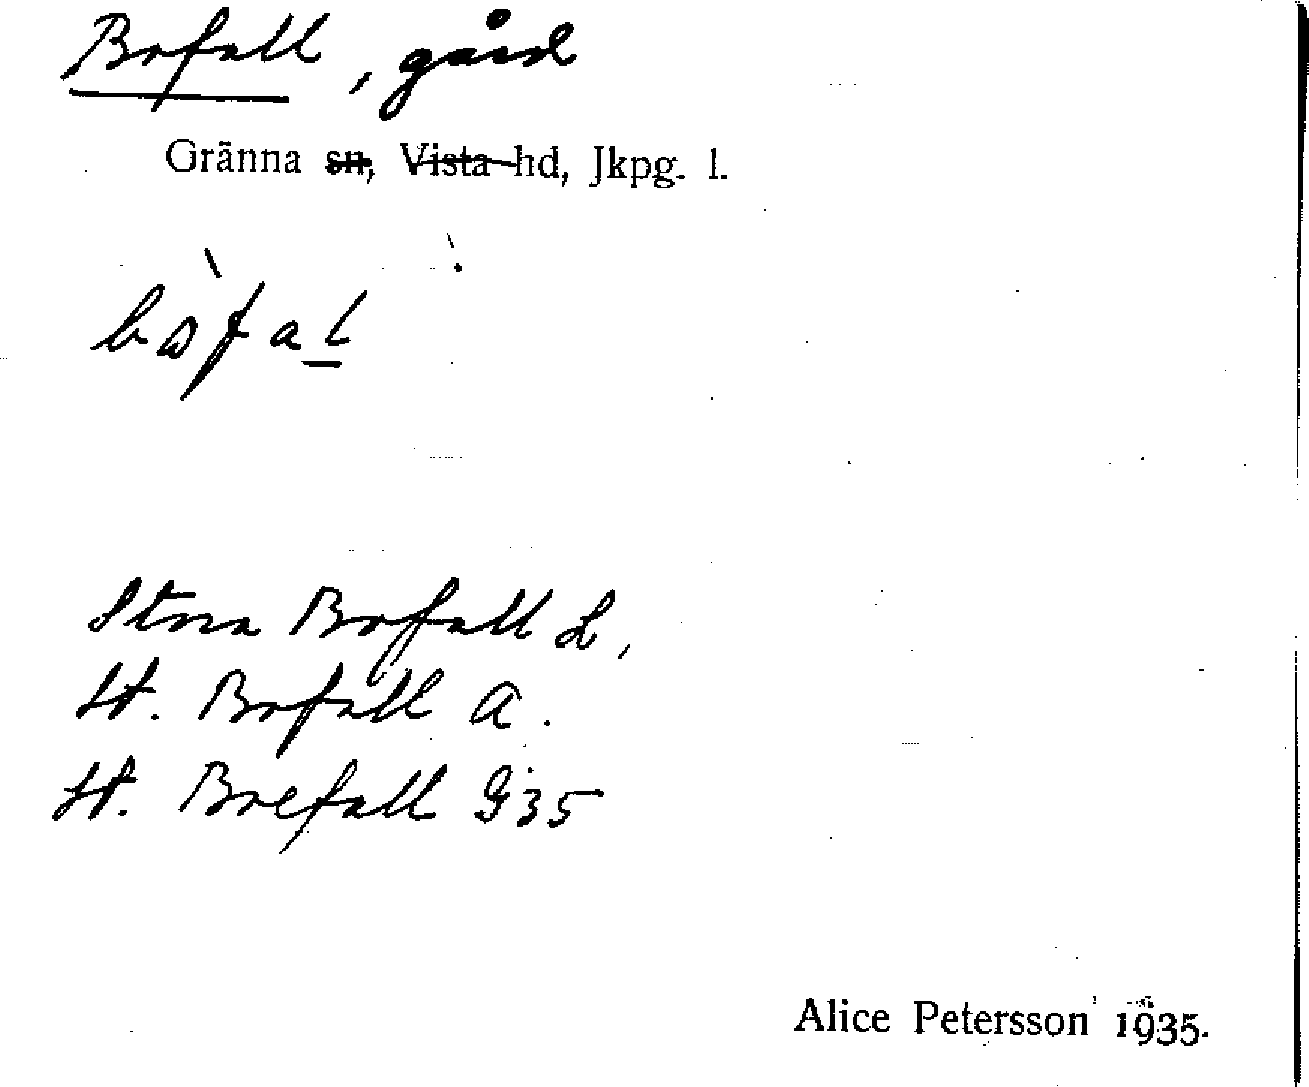 Bofall, gård
Gränna sn, Vista hd, Jkpg. l.
Stora Bofall L,
St. Bofall A.
St. Boefall G35
Alice Petersson 1935.